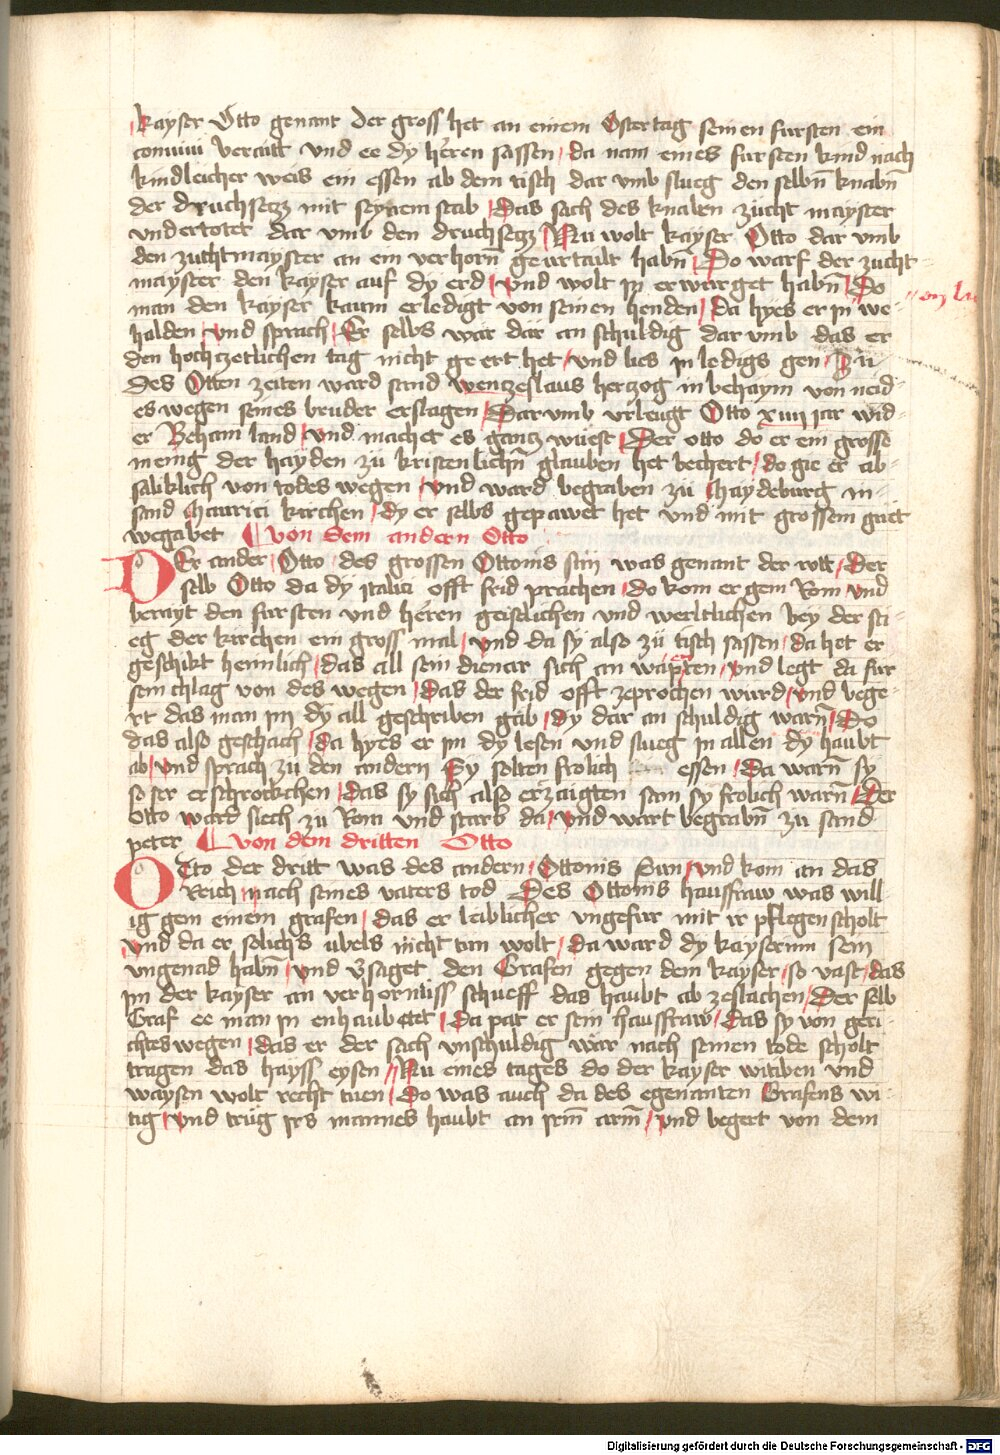 kayser Otto genant der gross het an einem Ostertag seinen fursten ein
conuiui beraitt vnd ee dy heren sassen da nam eines fursten kind nach
kindleicher weis ein essen ab dem tisch dar vmb slueg den selbn̄ knabn̄
der druchsecz mit seynem stab Das sach des knaben zucht mayster
vnd ertotet dar vmb den druchsecz Nu wolt kayser Otto dar vmb
den zuchtmayster an ein verhorn̄ geurtailt habn̄ Do warf der zucht-
mayster den kayser auf dy erd vnd wolt in erwurget habn̄ Do
man den kayser kaum erledigt von seinen henden da hyes er in we-
halden vnd sprach Er selbs war dar an schuldig dar vmb das er
den hochczetlichen tag nicht geert het vnd lies in ledigs gen Zu
des Otten zeiten ward sand wenczeslaus herczog in behaym von neid-
es wegen seines bruder erslagen Dar vmb vrleugt Otto xiiii jar wid-
er Beham land vnd machet es gancz wuest Der otto do er ein grosse
menig der hayden zu kristenlichn̄ glauben het bechert do gie er ab-
saliklich von todes wegen vnd ward begraben zu Maydeburg in-
sand Mauricii kirchen dy er selbs gepawet het vnd mit grossem guet
wegabet Von dem andern Otto
DEr ander Otto des grossen Ottonis sun was genant der rott der
selb Otto da dy ytalici offt frid prachen do kom er gem Rom vnd
berayt den fursten vnd heren geistlichen vnd werltlichen bey der sti-
eg der kirchen ein gross mal vnd da sy also zu tisch sassen da het er
geschikt heimlich das all sein dienar sich an wapten vnd legt da fur
sein chlag von des wegen das der frid offt zeprochen wurd vnd bege-
rt das man im dy all geschriben gab dy dar an schuldig warn̄ Do
das also geschach da hyes er im dy lesen vnd slueg in allen dy haubt
ab vnd sprach zu den andern Sy solten frolich essen Da warn̄ sy
so ser erschrockchen das sy sich also erzaigten sam sy frolich warn̄ Der
Otto ward siech zu Rom vnd starb da vnd wart begrabn̄ zu sand
peter Von dem dritten Otto
OTto der dritt was des andern Ottonis Sun vnd kom an das
Reich nach seines vaters tod Des Ottonis hausfraw was will-
ig gem einem grafen das er leiblicher vngefur mit ir pflegen scholt
vnd da er solichs vbels nicht tun wolt da ward dy kayserinn sein
vngenad habn̄ vnd v̄saget den Grafen gegen dem kayser so vast das
im der kayser an verhornuss schueff das haubt ab zeslachen Der selb
Graf ee man in enhaubttet da pat er sein hausfraw das sy von geri-
chtes wegen das er der sach vnschuldig war nach seinen tode scholt
tragen das hayss eysen Nu eines tages do der kayser witiben vnd
waysen wolt recht tuen Do was auch da des egenanten Grafens wi-
tig vnd trug irs mannes haubt an irm̄ arm̄ vnd begert von dem